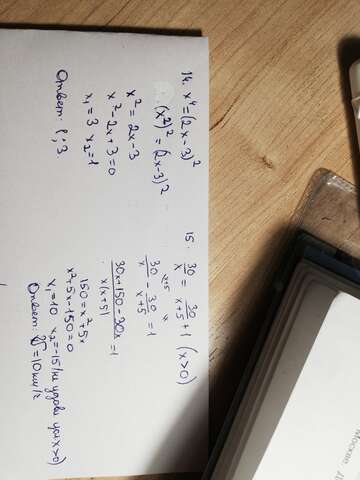 14. x⁴ = (2x-3)²
(x²)² = (2x-3)²
x² = 2x-3
x² - 2x + 3 = 0
x₁ = 3 x₂ = 1
Ответ: 1; 3
15. 30/x = 30/(x+5) + 1 (x>0)
30/x - 30/(x+5) = 1
(30x+150-30x)/(x(x+5)) = 1
150 = x² + 5x
x² + 5x - 150 = 0
x₁ = 10 x₂ = -15 (не удовл усл x>0)
= 10 км/ч
Москве